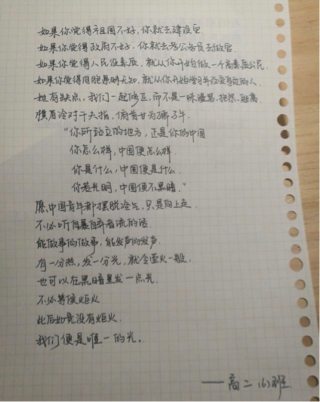 如果你觉得祖国不好，你就去建设它
如果你觉得政府不好，你就去考公务员去做官
如果你觉得人民没素质，就从你开始做一个高素质公民
如果你觉得同胞愚昧无知，就从你开始学习并改变身边的人
她有缺点，我们一起修正，而不是一味谩骂、抱怨、逃离
横眉冷对千夫指，俯首甘为孺子牛
“你所站立的地方，正是你的中国
你怎么样，中国便怎么样
你是什么，中国便是什么
你若光明，中国便不黑暗。”
愿中国青年都摆脱冷气，只是向上走
不必听自暴自弃者流的话
能做事的做事，能发声的发声
有一分热，发一分光，就令萤火一般
也可以在黑暗里发一点光
不必等候炬火
此后如竟没有炬火
我们便是唯一的光。
——高二（6）班